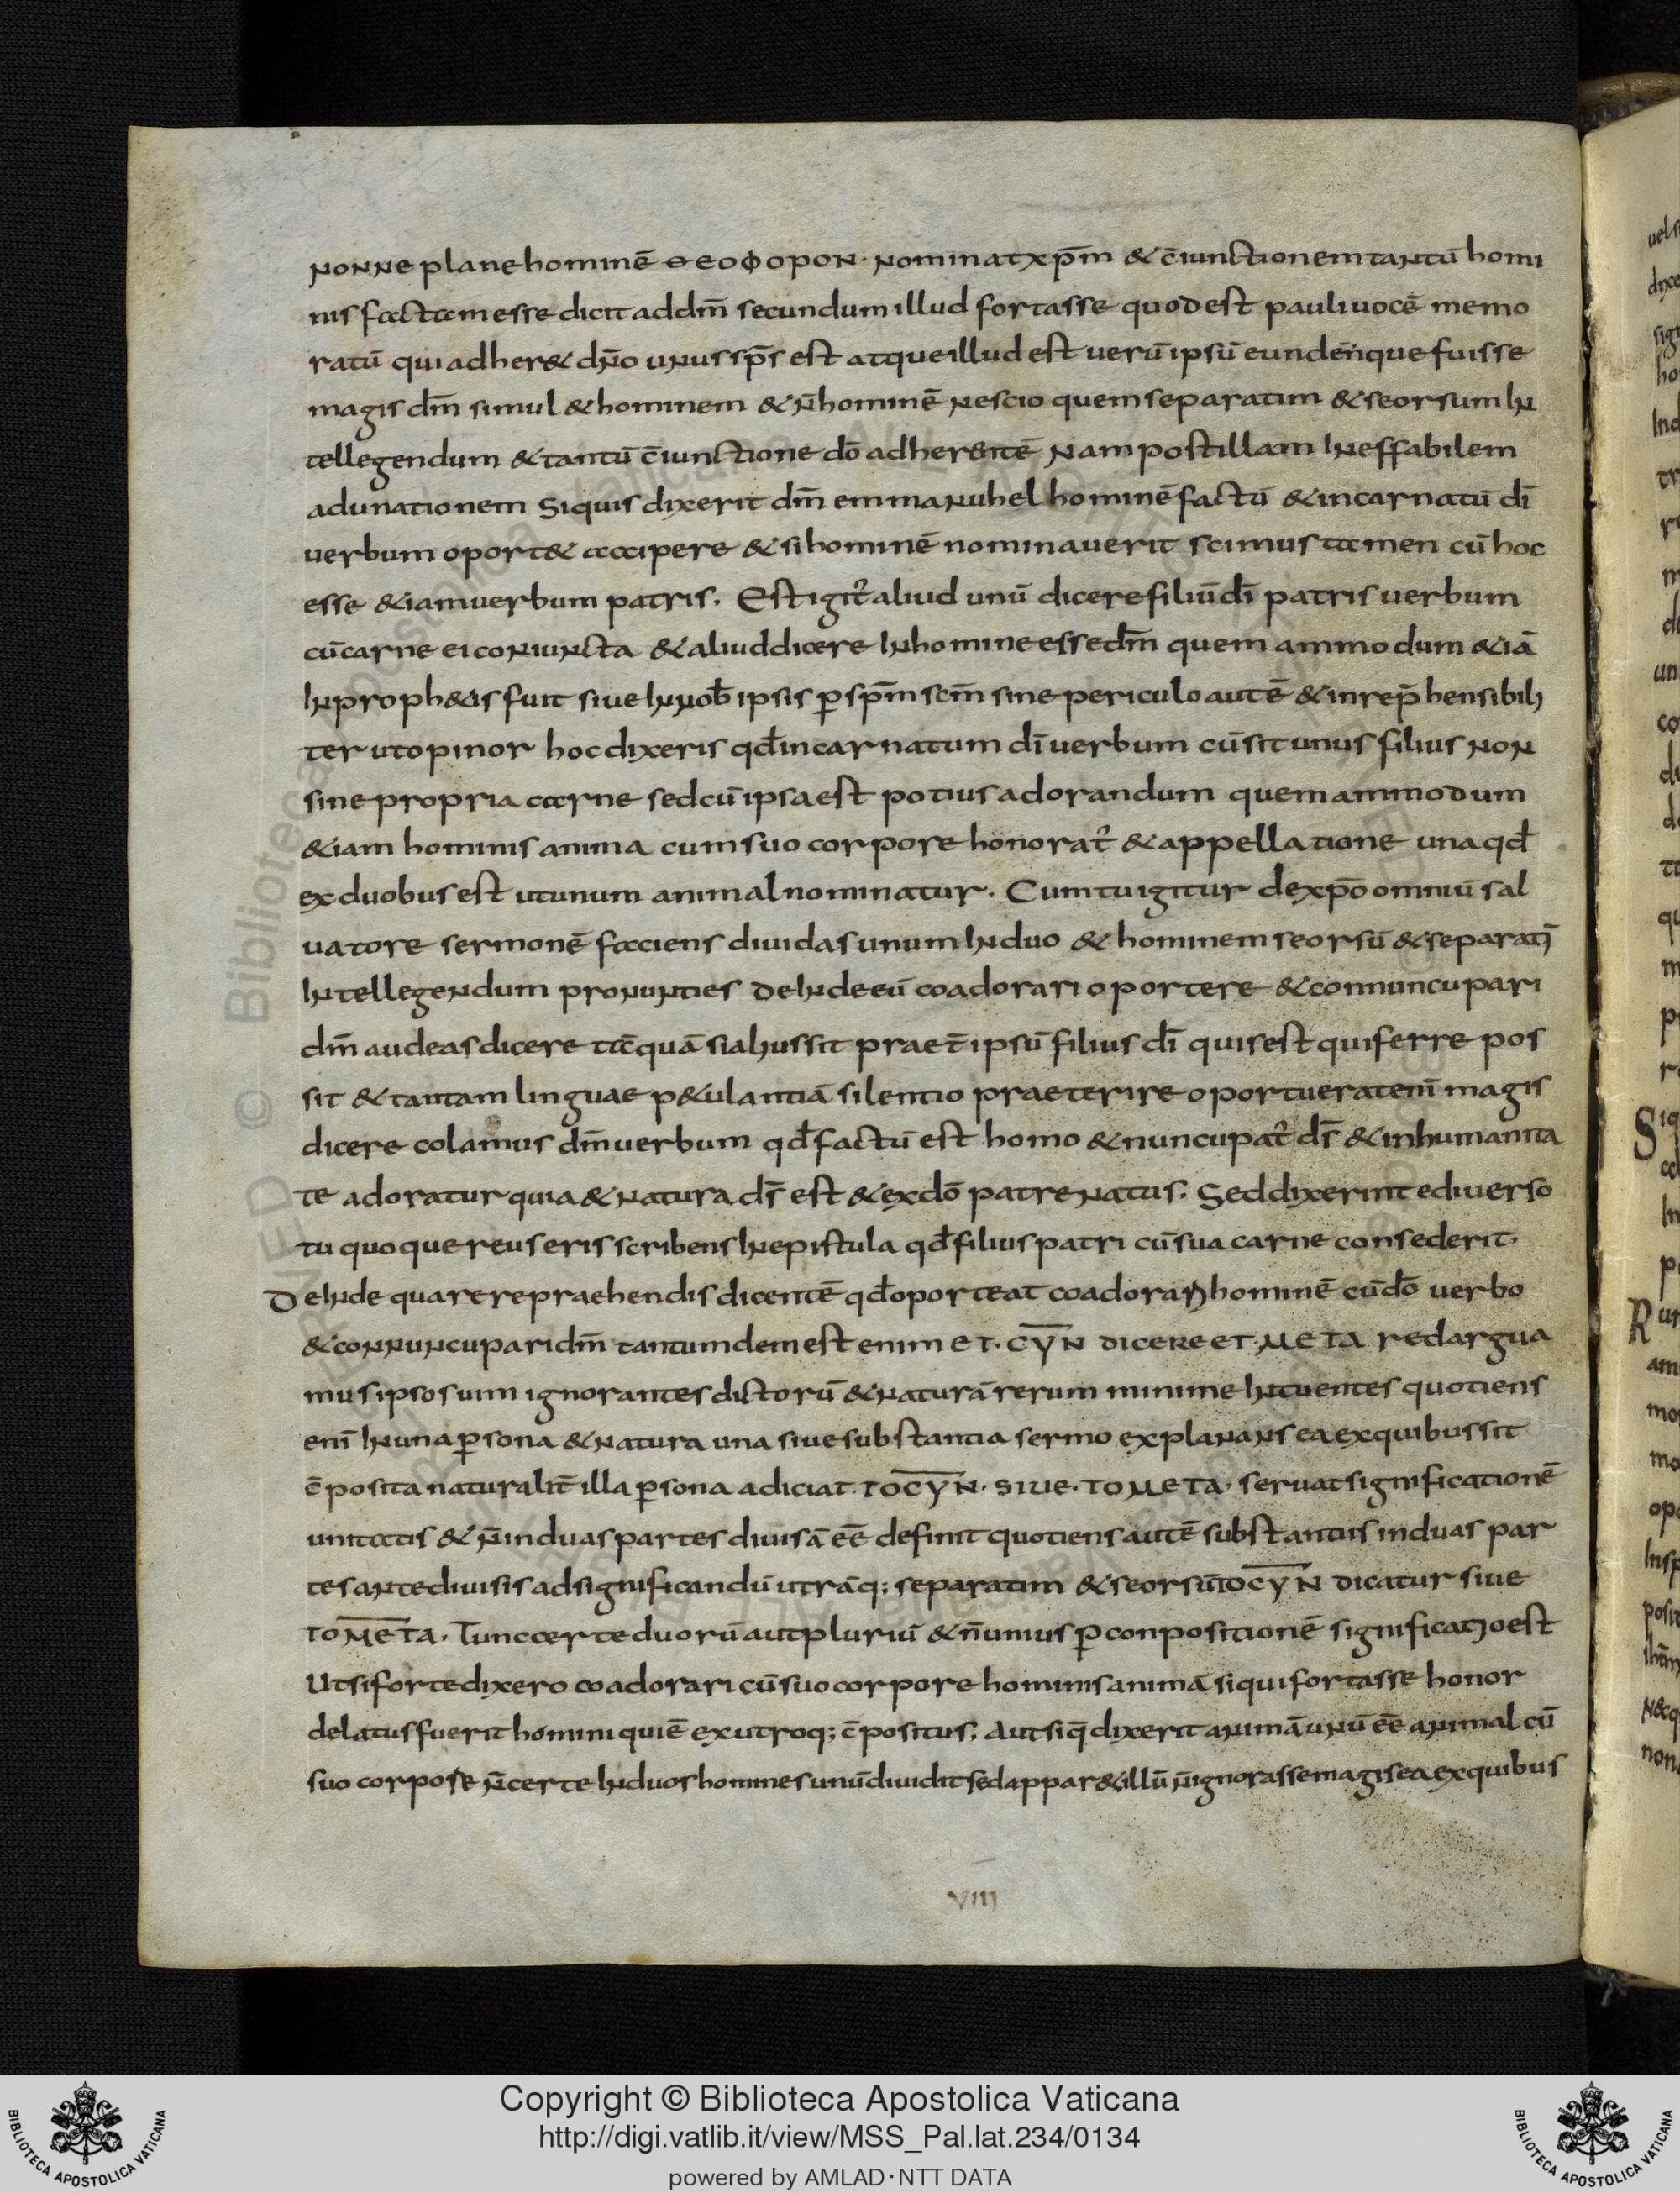 nonne plane hominē ΘΕΟΦΟΡΟΝ· nominat xp̄m & c̄iunctionem tantū homi
nis factam esse dicit ad dm̄ secundum illud fortasse quod est pauli uocē memo
ratū qui adher& dn̄o unus sp̄s est atque illud est uerū ipsū eundēnque fuisse
magis dm̄ simul & hominem & n̄ hominē nescio quem separatim & seorsum in
tellegendum & tantū c̄iunctione dō adher&ntē nam post illam ineffabilem
adunationem Siquis dixerit dm̄ emmanuhel hominē factū & incarnatū dī
uerbum oport& accipere & si hominē nominauerit scimus tamen cū hoc
esse &iam uerbum patris. Est igit̄ aliud unū dicere filiū dī patris uerbum
cū carne ei coniuncta & aliud dicere in homine esse dm̄ quem ammodum &iā
in proph&is fuit siue in nob̄ ipsis p̄ sp̄m scm̄ sine periculo autē & inrep̄hensibili
ter ut opinor hoc dixeris qd̄ incarnatum dī uerbum cū sit unus filius non
sine propria carne sed cū ipsa est potius adorandum quemammodum
&iam hominis anima cum suo corpore honorat̄ & appellatione una qd̄
ex duobus est ut unum animal nominatur. Cum tu igitur de xp̄o omniū sal
uatore sermonē faciens diuidas unum in duo & hominem seorsū & separatī
intellegendum pronunties deinde eū coadorari oportere & connuncupari
dm̄ audeas dicere tāquā si alius sit praet̄ ipsū filius dī quis est qui ferre pos
sit & tantam linguae p&ulantiā silentio praeterire oportuerat enī magis
dicere colamus dm̄ uerbum qd̄ factū est homo & nuncupat̄ ds̄ & in humanita
te adoratur quia & natura ds̄ est & ex dō patre natus. Sed dixerint e diuerso
tu quoque reus eris scribens in epistula qd̄ filius patri cū sua carne consederit.
Deinde quare repraehendis dicentē qd̄ oporteat coadorari hominē cū dō uerbo
& connuncupari dm̄ tantumdem est enim ET· CYN DICERE ET· META redargua
mus ipsos uim ignorantes dictorū & naturā rerum minime intuentes quotiens
enī in una p̄sona & natura una siue substantia sermo explanans ea ex quibus sit
c̄posita naturalit̄ illa p̄sona adiciat. TO CYN· SIUE· TO META· seruat significationē
unitatis & n̄ in duas partes diuisā eē definit quotiens autē substantiis in duas par
tes ante diuisis ad significandū utrāq; separatim & seorsū TO CYN dicatur siue
TO META. Tunc certe duorū aut pluriū & n̄ unius p̄ conpositionē significatio est
Ut si forte dixero coadorari cū suo corpore hominis animā si qui fortasse honor
delatus fuerit homini qui ē ex utroq; c̄positus. Aut siq̄ dixerit animā unū eē animal cū
suo corpore n̄ certe in duos homines unū diuidit sed appar& illū n̄ ignorasse magis ea ex quibus
VIII
Copyright © Biblioteca Apostolica Vaticana
http://digi.vatlib.it/view/MSS_Pal.lat.234/0134
powered by AMLAD·NTT DATA